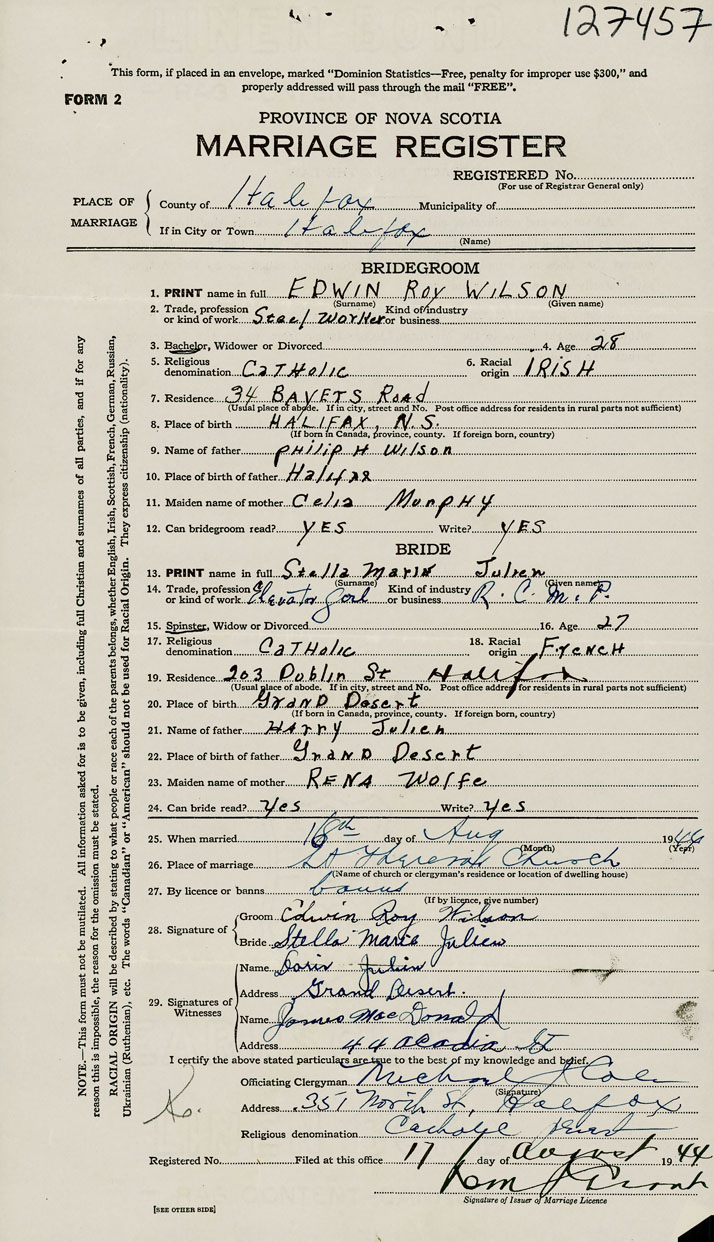 127457
This form, if placed in an envelope, marked “Dominion Statistics—Free, penalty for improper use $300,” and
properly addressed will pass through the mail “FREE”.
FORM 2
PROVINCE OF NOVA SCOTIA
MARRIAGE REGISTER
REGISTERED No.
(For use of Registrar General only)
PLACE OF MARRIAGE
County of Halifax Municipality of
If in City or Town Halifax
(Name)
BRIDEGROOM
1. PRINT name in full EDWIN ROY WILSON
(Surname) (Given name)
2. Trade, profession or kind of work Steel Worker Kind of industry or business
3. Bachelor, Widower or Divorced 4. Age 28
5. Religious denomination CATHOLIC 6. Racial origin IRISH
7. Residence 34 BAYERS Road
(Usual place of abode. If in city, street and No. Post office address for residents in rural parts not sufficient)
8. Place of birth HALIFAX, N.S.
(If born in Canada, province, county. If foreign born, country)
9. Name of father PHILIP H WILSON
10. Place of birth of father Halifax
11. Maiden name of mother Celia Murphy
12. Can bridegroom read? YES Write? YES
BRIDE
13. PRINT name in full Stella Marie Julien
(Surname) (Given name)
14. Trade, profession or kind of work Elevator Girl Kind of industry or business R. C. M. P.
15. Spinster, Widow or Divorced 16. Age 27
17. Religious denomination CATHOLIC 18. Racial origin FrENCH
19. Residence 203 Dublin St Halifax
(Usual place of abode. If in city, street and No. Post office address for residents in rural parts not sufficient)
20. Place of birth GranD Desert
(If born in Canada, province, county. If foreign born, country)
21. Name of father Harry Julien
22. Place of birth of father GranD Desert
23. Maiden name of mother RENA Wolfe
24. Can bride read? Yes Write? Yes
25. When married 16th day of Aug 1944
(Month) (Year)
26. Place of marriage St Theresa's Church
(Name of church or clergyman's residence or location of dwelling house)
27. By licence or banns banns
(If by licence, give number)
28. Signature of
Groom Edwin Roy Wilson
Bride Stella Marie Julien
29. Signatures of Witnesses
Name Doris Julien
Address Grand Desert.
Name James MacDonald
Address 44 Acadia St
I certify the above stated particulars are true to the best of my knowledge and belief.
Officiating Clergyman Michael J
(Signature)
Address 351 North St, Halifax
Religious denomination Catholic Priest
Registered No. Filed at this office 17 day of August 1944
Signature of Issuer of Marriage Licence
[SEE OTHER SIDE]
NOTE.—This form must not be mutilated. All information asked for is to be given, including full Christian and surnames of all parties, and if for any
reason this is impossible, the reason for the omission must be stated.
RACIAL ORIGIN will be described by stating to what people or race each of the parents belongs, whether English, Irish, Scottish, French, German, Russian,
Ukrainian (Ruthenian), etc. The words “Canadian” or “American” should not be used for Racial Origin. They express citizenship (nationality).